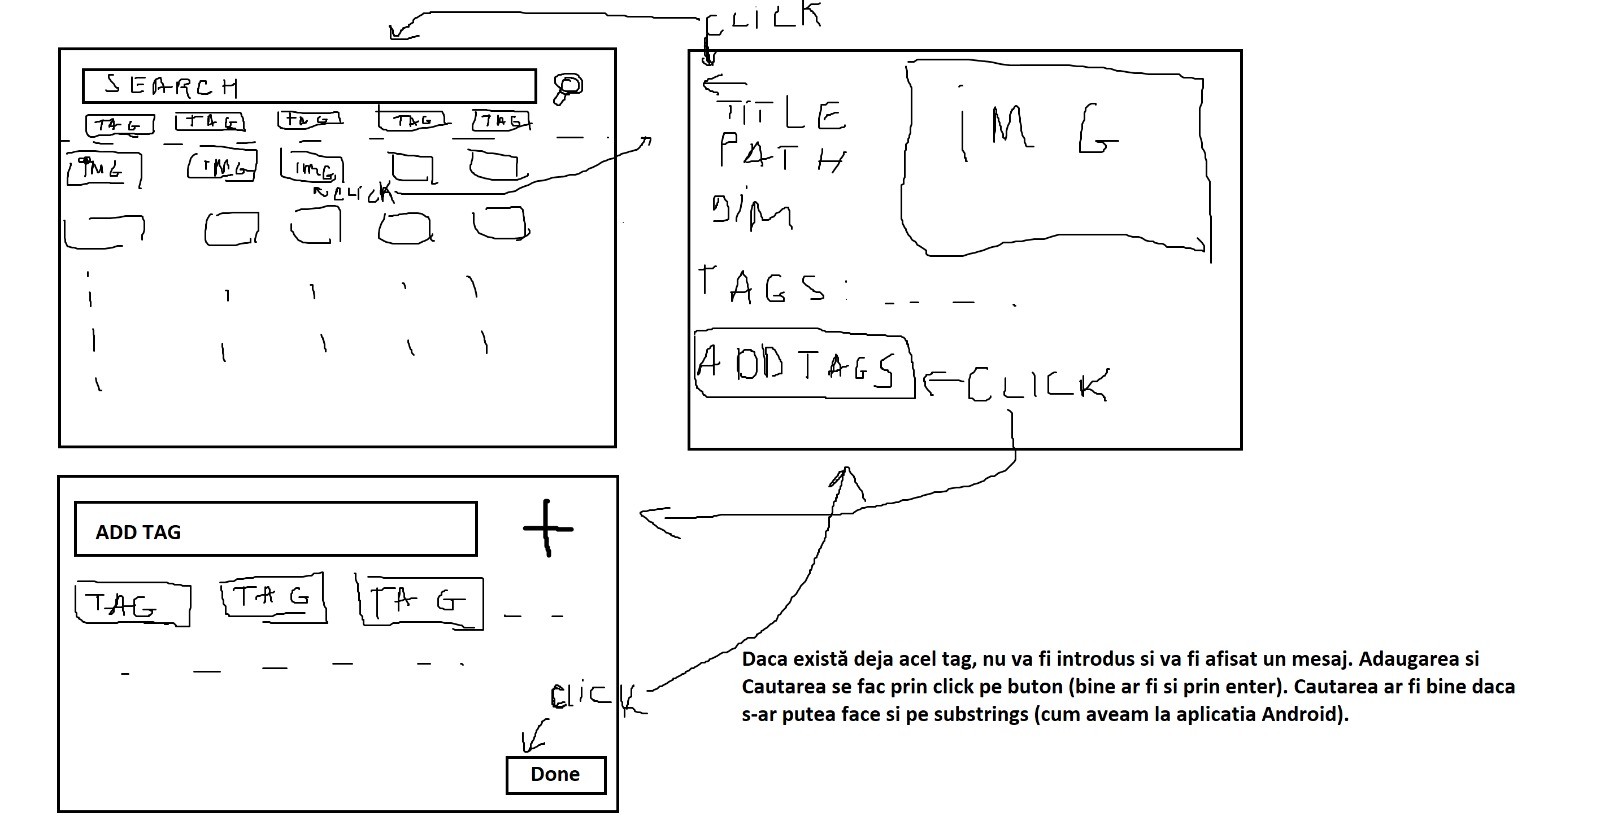 CLICK
SEARCH
TAG TAG TAG TAG TAG
IMG IMG IMG
CLICK
TITLE
PATH
DIM
IMG
TAGS:
ADD TAGS
CLICK
ADD TAG
TAG TAG TAG
CLICK
Done
Daca există deja acel tag, nu va fi introdus si va fi afisat un mesaj. Adaugarea si
Cautarea se fac prin click pe buton (bine ar fi si prin enter). Cautarea ar fi bine daca
s-ar putea face si pe substrings (cum aveam la aplicatia Android).